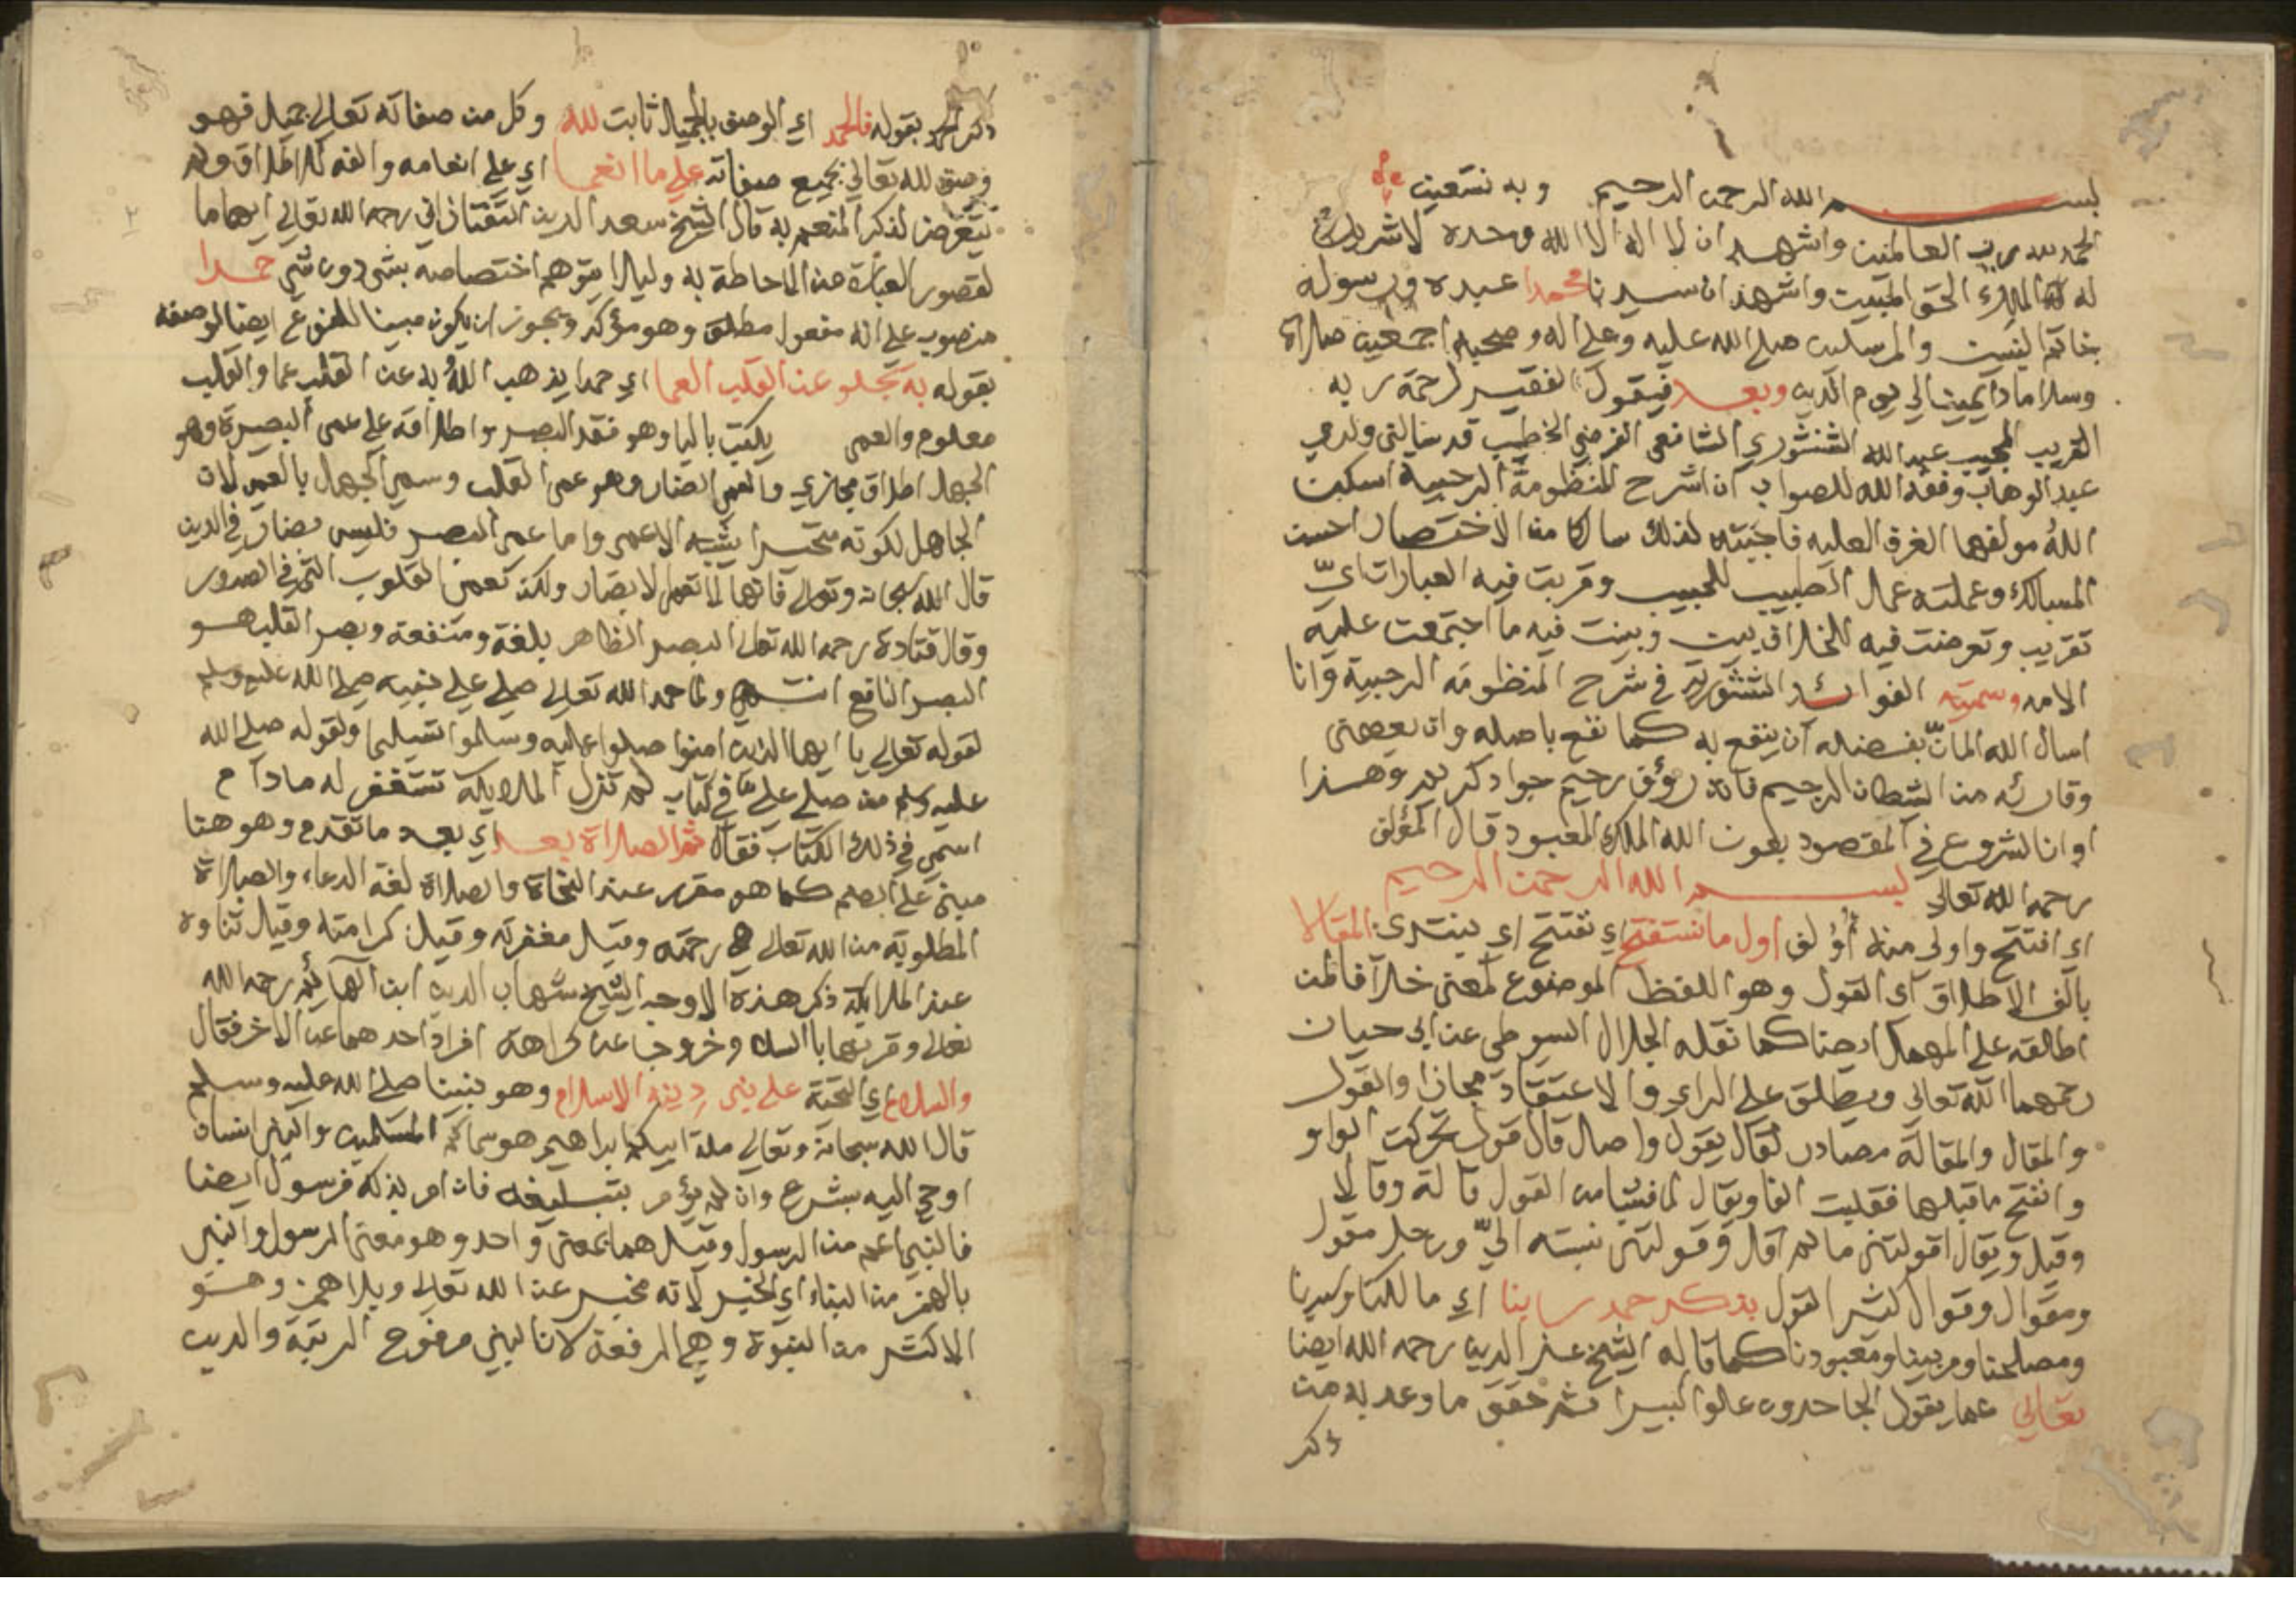 بســـــم الله الرحمن الرحيم وبه نستعين
الحمد لله رب العالمين واشهد ان لا اله الا الله وحده لا شريك
له الملك الحق المبين واشهد ان سيدنا محمدا عبده ورسوله
خاتم النبيين والمرسلين صلى الله عليه وعلى اله وصحبه اجمعين صلاة
وسلاما دايمين الي يوم الدين وبعد فيقول الفقير لرحمة ربه
القريب المجيب عبد الله الشنشوري الشافعي الفرضي الخطيب قد سالني ولدي
عبد الوهاب وفقه الله للصواب ان اشرح المنظومة الرحبية اسكن
الله مولفها الغرف العليه فاجبته لذلك سالكا من الاختصار احسن
المسالك وعملته عمل الطبيب للحبيب وقربت فيه العبارات اي
تقريب وتعرضت فيه للخلاف وبينت فيه ما اجتمعت عليه
الامه وسميته الفوائد الشنشورية في شرح المنظومة الرحبية وانا
اسال الله المان بفضله ان ينفع به كما نفع باصله وان يعصمني
وقارئه من الشيطان الرجيم فانه رؤف رحيم جواد كريم وهذا
اوان الشروع في المقصود بعون الله الملك المعبود قال المؤلف
رحمه الله تعالى بســـم الله الرحمن الرحيم
اي افتتح واولى منه أؤلف اول ما نستفتح اي نفتتح اي نبتدئ المقالا
بالف الاطلاق اي القول وهو اللفظ الموضوع لمعنى خلافا لمن
اطلقه على المهمل ايضا كما نقله الجلال السيوطي عن ابي حيان
رحمهما الله تعالى ويطلق على الراي والاعتقاد مجازا والقول
والمقال والمقالة مصادر لقال يقول واصل قال قول تحركت الواو
وانفتح ما قبلها فقلبت الفا ويقال لما فشا من القول قالة وقالا
وقيل ويقال اقولتني ما لم اقل وقولتني نسبته اليّ ورجل مقول
ومقوال وقوال كثير القول بذكر حمد ربنا اي مالكنا وسيدنا
ومصلحنا ومربينا ومعبودنا كما قاله الشيخ عز الدين رحمه الله ايضا
تعالى عما يقول الجاحدون علوا كبيرا ثم حقق ما وعد به من
ذكر
ذكر الحمد بقوله فالحمد اي الوصف بالجميل ثابت لله وكل من صفاته تعالى جميل فهو
وصف لله تعالى بجميع صفاته على ما انعما اي على انعامه والفه للاطلاق ولم
يتعرض لذكر المنعم به قال الشيخ سعد الدين التفتازاني رحمه الله تعالى ايهاما
لقصور العبارة من الاحاطة به وليلا يتوهم اختصاصه بشي دون شي حمدا
منصوب على انه مفعول مطلق وهو مؤكد ويجوز ان يكون مبينا للنوع ايضا لوصفه
بقوله به يجلو عن القلب العما اي حمدا يذهب الله به عن القلب عما والقلب
معلوم والعمى يكتب باليا وهو فقد البصر واطلاقه على عمى البصيرة وهو
الجهل اطلاق مجازي والعمى الضار وهو عمى القلب وسمي الجهل بالعمى لان
الجاهل لكونه متحيرا يشبه الاعمى واما عمى البصر فليس بضار في الدين
قال الله سبحانه وتعالى فانها لا تعمى الابصار ولكن تعمى القلوب التي في الصدور
وقال قتادة رحمه الله تعالى البصر الظاهر بلغة ومنفعة وبصر القلب هو
البصر النافع انتهى ولما حمد الله تعالى صلى على نبيه صلى الله عليه وسلم
لقوله تعالى يا ايها الذين امنوا صلوا عليه وسلموا تسليما ولقوله صلى الله
عليه وسلم من صلى علي في كتاب لم تزل الملايكة تستغفر له ما دام
اسمي في ذلك الكتاب فقال ثم الصلاة بعد اي بعد ما تقدم وهو هنا
مبني على الضم كما هو مقرر عند النحاة والصلاة لغة الدعاء والصلاة
المطلوبة من الله تعالى هي رحمته وقيل مغفرته وقيل كرامته وقيل ثناوه
عند الملايكة ذكر هذه الاوجه الشيخ شهاب الدين ابن الهائم رحمه الله
تعالى وقرنها بالسلام وخروجا عن كراهة افراد احدهما عن الاخر فقال
والسلام اي التحية على نبي دينه الاسلام وهو نبينا صلى الله عليه وسلم
قال الله سبحانه وتعالى ملة ابيكم ابراهيم هو سماكم المسلمين والنبي انسان
اوحي اليه بشرع وان لم يؤمر بتبليغه فان امر بذلك فرسول ايضا
فالنبي اعم من الرسول وقيل هما بمعنى واحد وهو معنى الرسول والنبي
بالهمز من النباء اي الخبر لانه مخبر عن الله تعالى وبلا همز وهو
الاكثر من النبوة وهي الرفعة لان النبي مرفوع الرتبة والدين